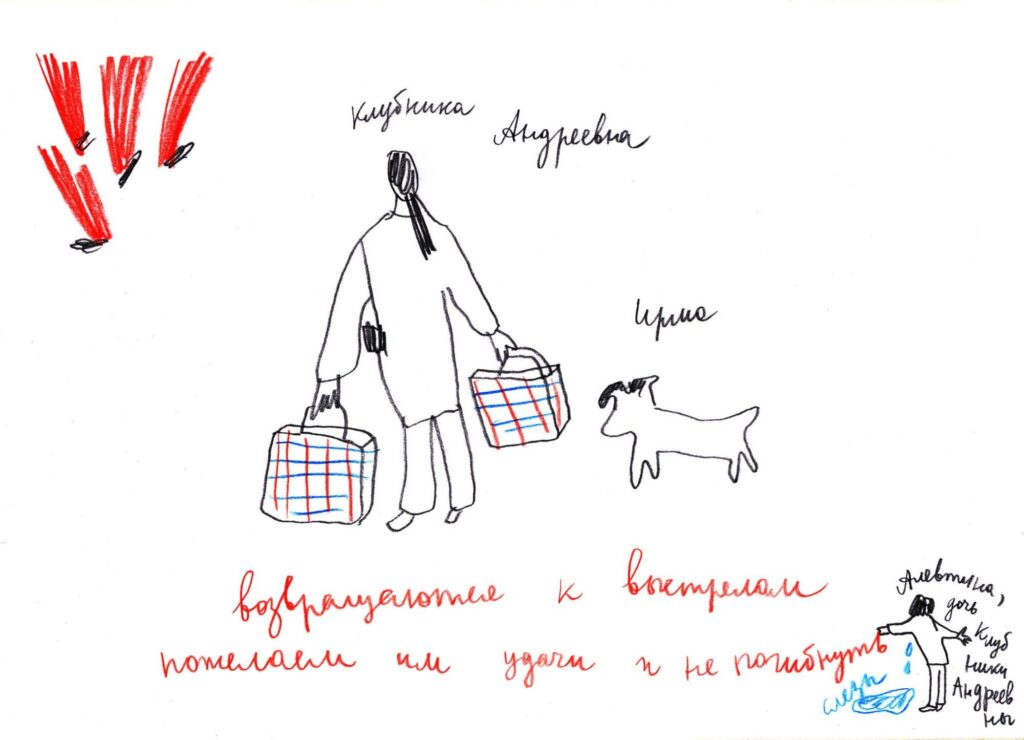 Клубника
Андреевна
Ирма
возвращаются к выстрелам
пожелаем им удачи и не погибнуть
Алевтина,
дочь
Клуб
ники
Андреев
ны
слёзы